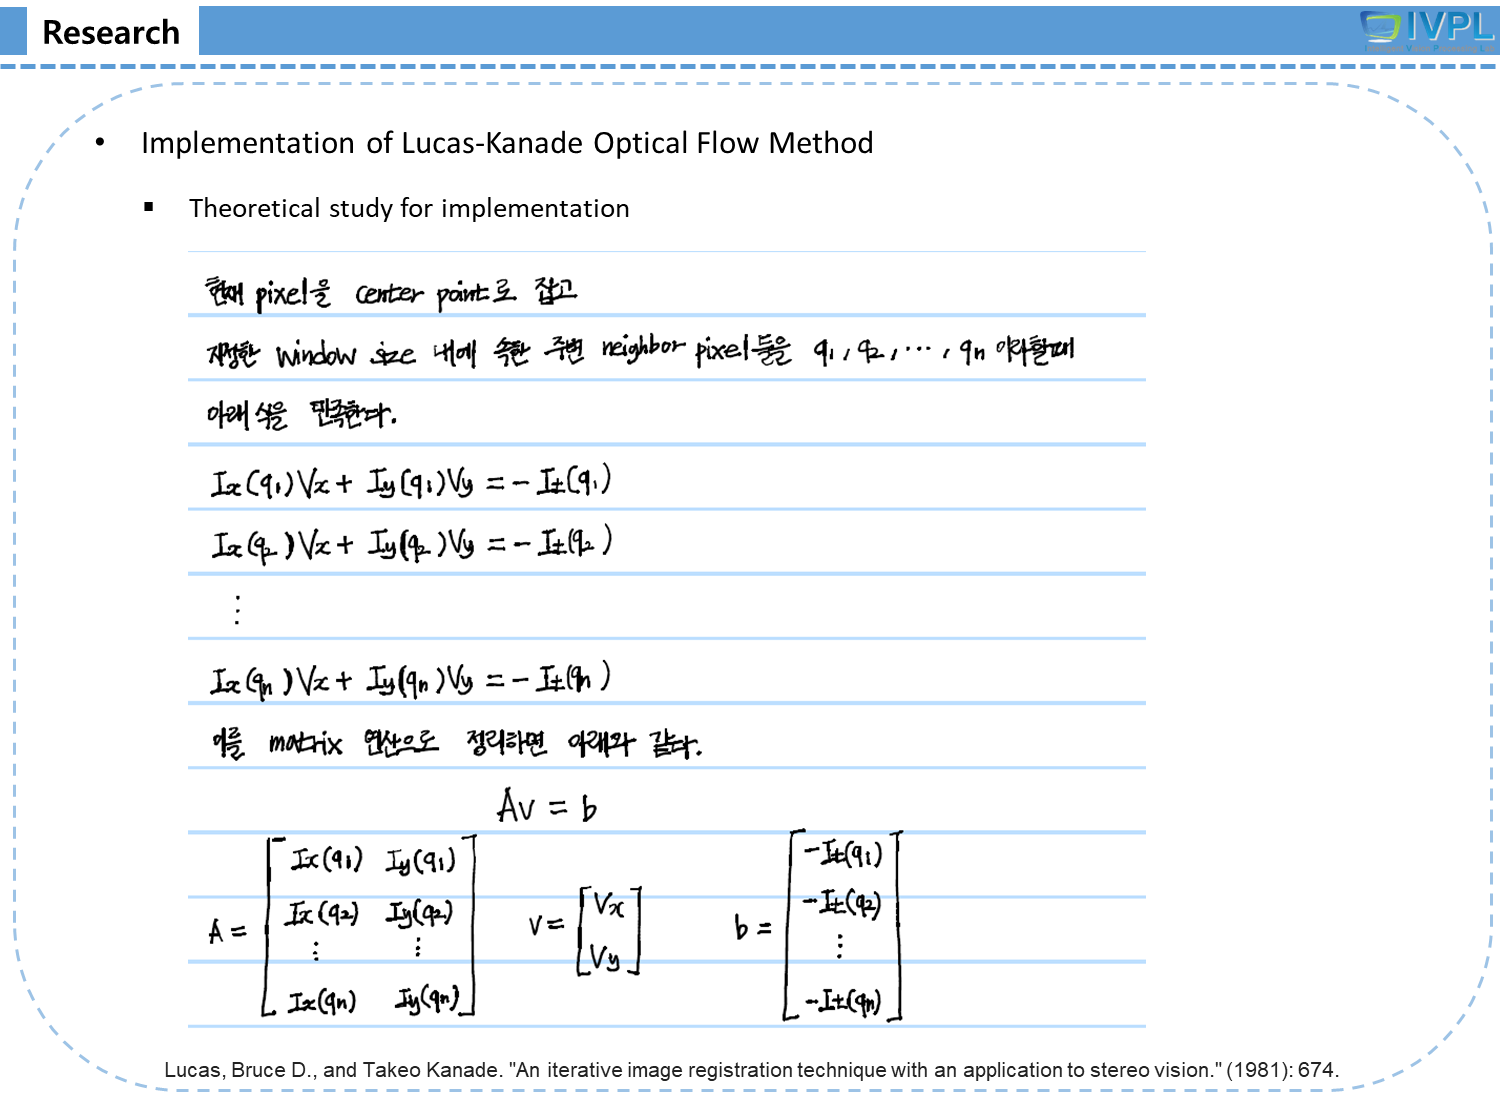 Research
IVPL
• Implementation of Lucas-Kanade Optical Flow Method
▪ Theoretical study for implementation
현재 pixel을 center point로 잡고
지정한 window size 내에 속한 주변 neighbor pixel들을 q₁, q₂, ⋯, qn 이라할때
아래 식을 만족한다.
Ix(q₁)Vx + Iy(q₁)Vy = - It(q₁)
Ix(q₂)Vx + Iy(q₂)Vy = - It(q₂)
⋮
Ix(qn)Vx + Iy(qn)Vy = - It(qn)
이를 matrix 연산으로 정리하면 아래와 같다.
Av = b
A = [Ix(q₁) Iy(q₁) Ix(q₂) Iy(q₂) ⋮ ⋮ Ix(qn) Iy(qn)] v = [Vx Vy] b = [-It(q₁) -It(q₂) ⋮ -It(qn)]
Lucas, Bruce D., and Takeo Kanade. "An iterative image registration technique with an application to stereo vision." (1981): 674.